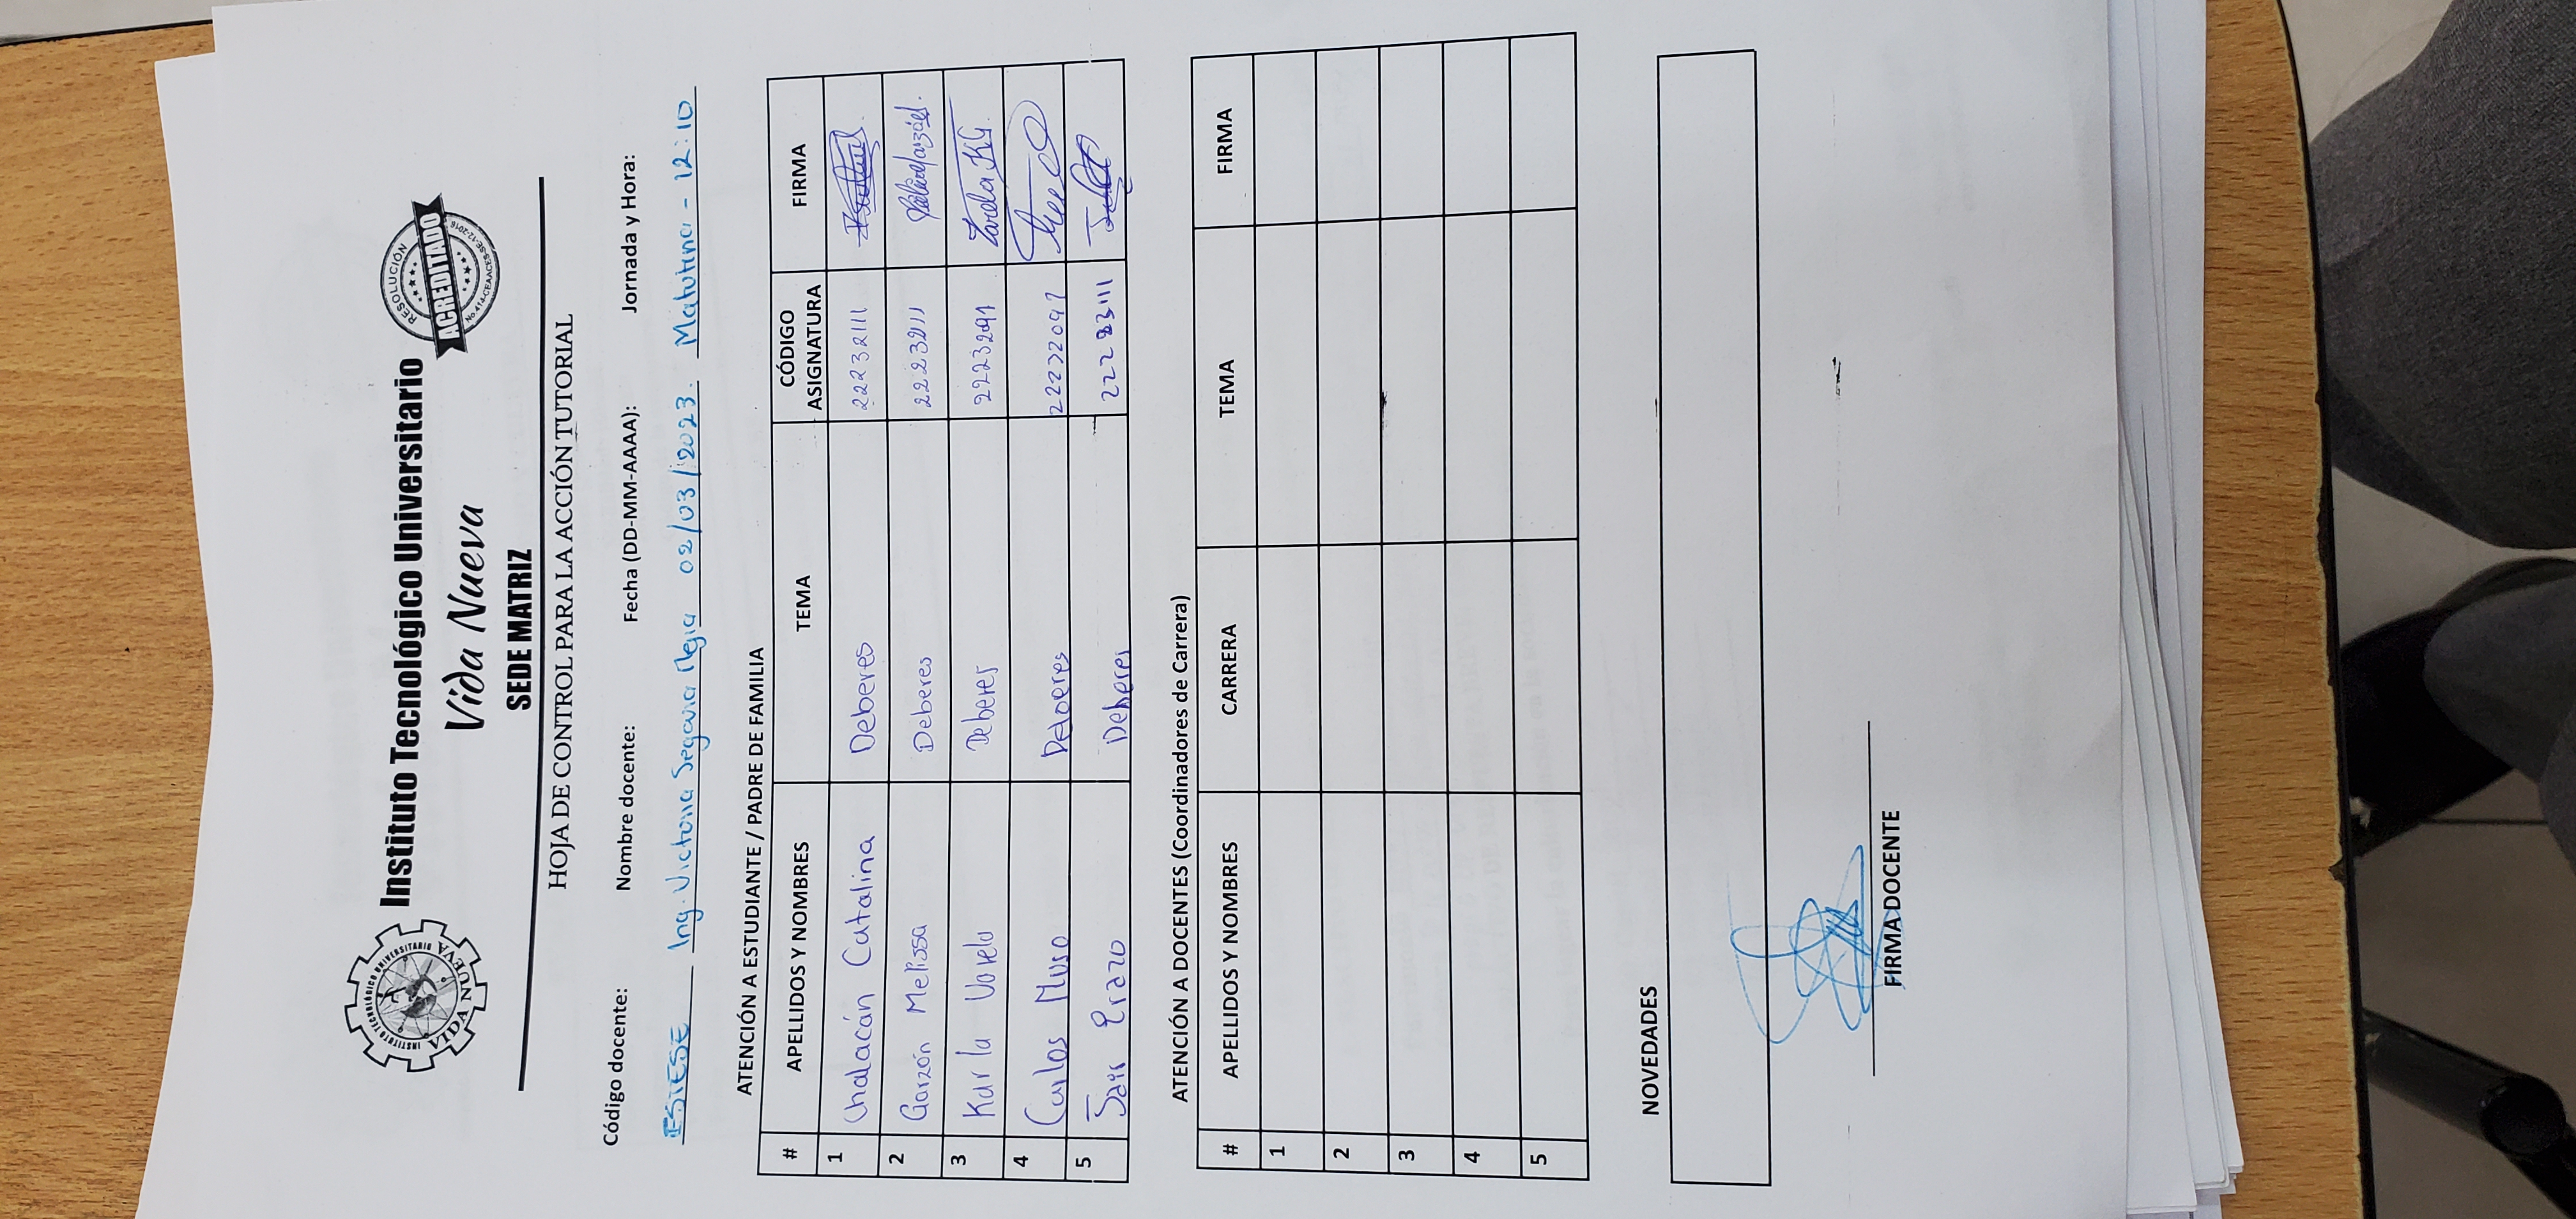 INSTITUTO TECNOLÓGICO UNIVERSITARIO
VIDA NUEVA
Instituto Tecnológico Universitario
Vida Nueva
SEDE MATRIZ
RESOLUCIÓN
ACREDITADO
No.414-CEAACES-SE-12-2016
HOJA DE CONTROL PARA LA ACCIÓN TUTORIAL
Código docente: Nombre docente: Fecha (DD-MM-AAAA): Jornada y Hora:
ESTESE Ing. Victoria Segovia Mejia 02/03/2023. Matutina - 12:10
ATENCIÓN A ESTUDIANTE / PADRE DE FAMILIA
# APELLIDOS Y NOMBRES TEMA CÓDIGO ASIGNATURA FIRMA
1 Chalacán Catalina Deberes 22232111
2 Garzón Melissa Deberes 2223211
3 Karla Varela Deberes 22232091 Varela KG.
4 Carlos Muso Deberes 22232091
5 Jair Erazo Deberes
ATENCIÓN A DOCENTES (Coordinadores de Carrera)
# APELLIDOS Y NOMBRES CARRERA TEMA FIRMA
1
2
3
4
5
NOVEDADES
FIRMA DOCENTE